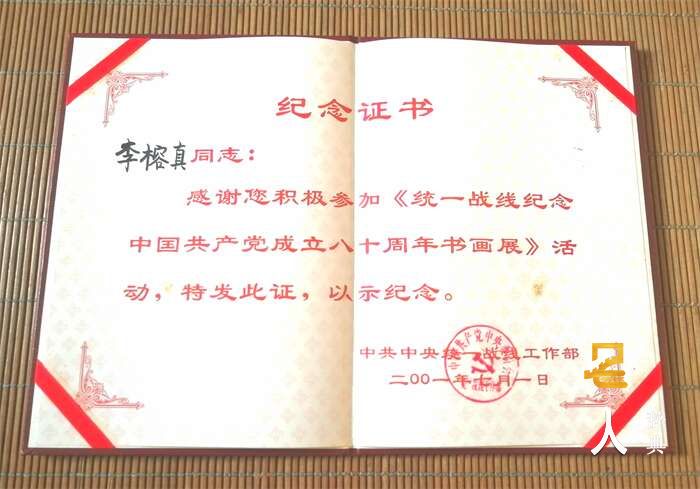 纪念证书
李榕真同志：
感谢您积极参加《统一战线纪念
中国共产党成立八十周年书画展》活
动，特发此证，以示纪念。
中共中央统一战线工作部
二00一年七月一日
名人
辞典